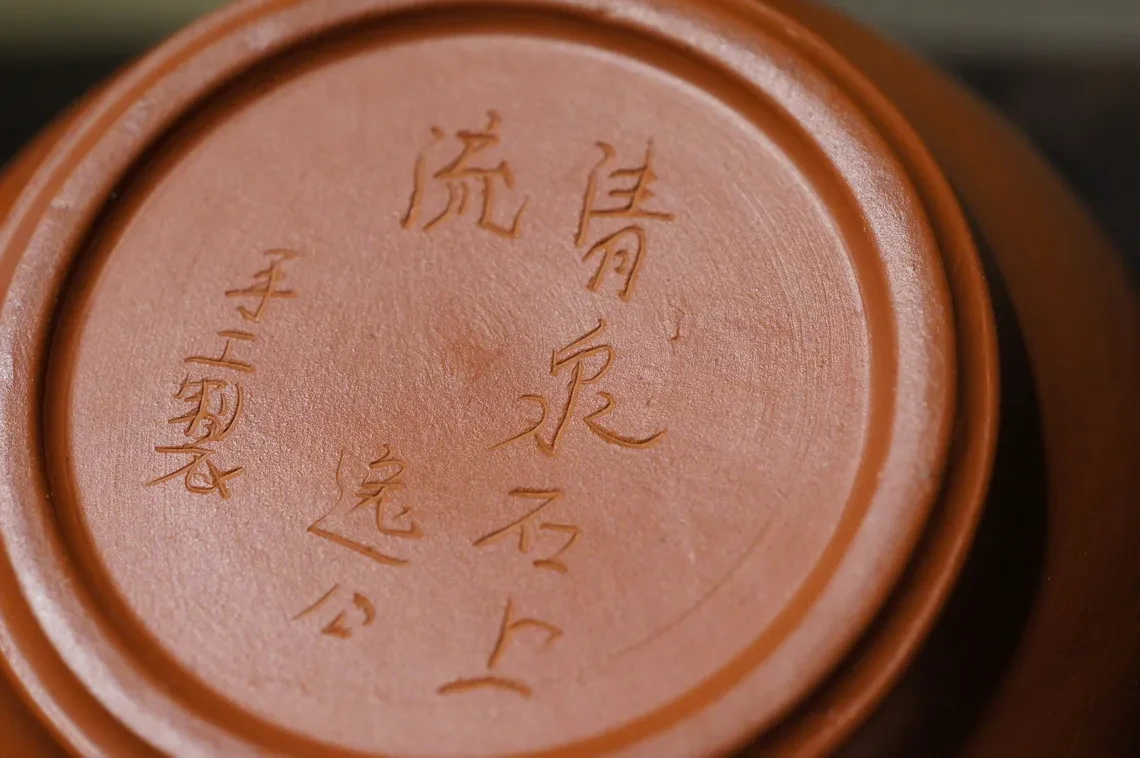 清泉石上
流 逸公
手工製